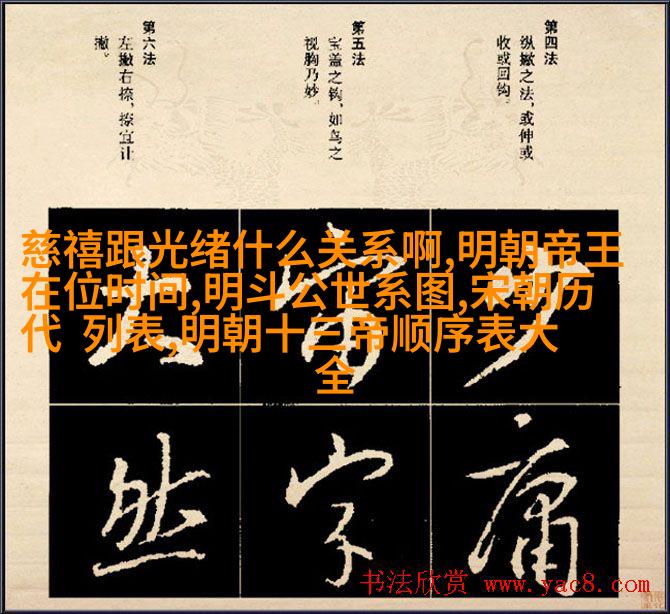 第四法
纵撇之法，或伸或
收或回钩。
第五法
宝盖之钩，如鸟之
视胸乃妙。
第六法
左撇右捺，捺宜让
撇。
慈禧跟光绪什么关系啊,明朝帝王
在位时间,明斗公世系图,宋朝历
代 列表,明朝十三帝顺序表大
全
然 字 庸
书法欣赏 www.yac8.com